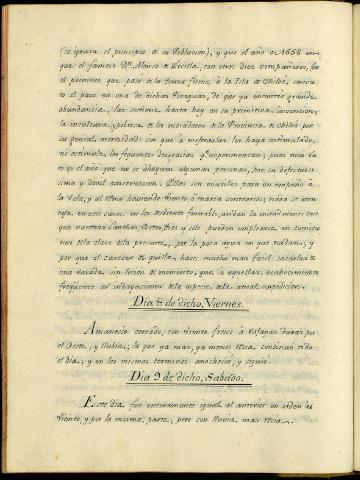 (se ignora el principio de su Poblacion), y que el año de 1558 en
que el famoso Dn. Alonso de Ercilla, con otros diez compañeros, fue
el primero que pasó de la tierra firme à la Isla de Chiloè, execu
tó el paso en una de dichas Piraguas, de que ya encontró grande
abundancia, las mantiene hasta hoy en su primitiva invencion,
la incultura, y pobreza de los moradores de la Provincia de Chiloè por
su genial morosidad; sin que à mejorarlas les haya estimulado,
ni estimule, las freqüentes desgracias qe. experimentan; pues rara vez
es el año que no se ahogan algunas personas, por su defectuosi
sima y devil construccion. Ellas son inutiles para un empeño à
la Vela, y al Remo haviendo viento, ò marea contrarios; nada se aven
taja en estos casos: en los de viento favorable, andan la mitad menos que
nuestras Lanchas, Botes, &c. y solo pueden emplearse en comisio
nes de la clase de la presente, por la poca agua en que nadan; y
por que el carecer de quilla hace mucho mas facil sacarlas de
una varada sin lesion de momento, que à aquellas: acahecimiento
freqüente en indagaciones de la especie de la actual expedicion.
Dia 8 de dicho, Viernes.
Amaneció cerrado, con viento fresco à rafagas duras por
el Oeste, y lluvia; la que ya mas, ya menos recia, continuó todo
el dia; y en los mismos terminos anocheció, y siguió.
Dia 9 de dicho, Sabado.
Este dia fue enteramente igual al anterior en orden al
viento, y por la misma parte; pero con lluvia mas recia.